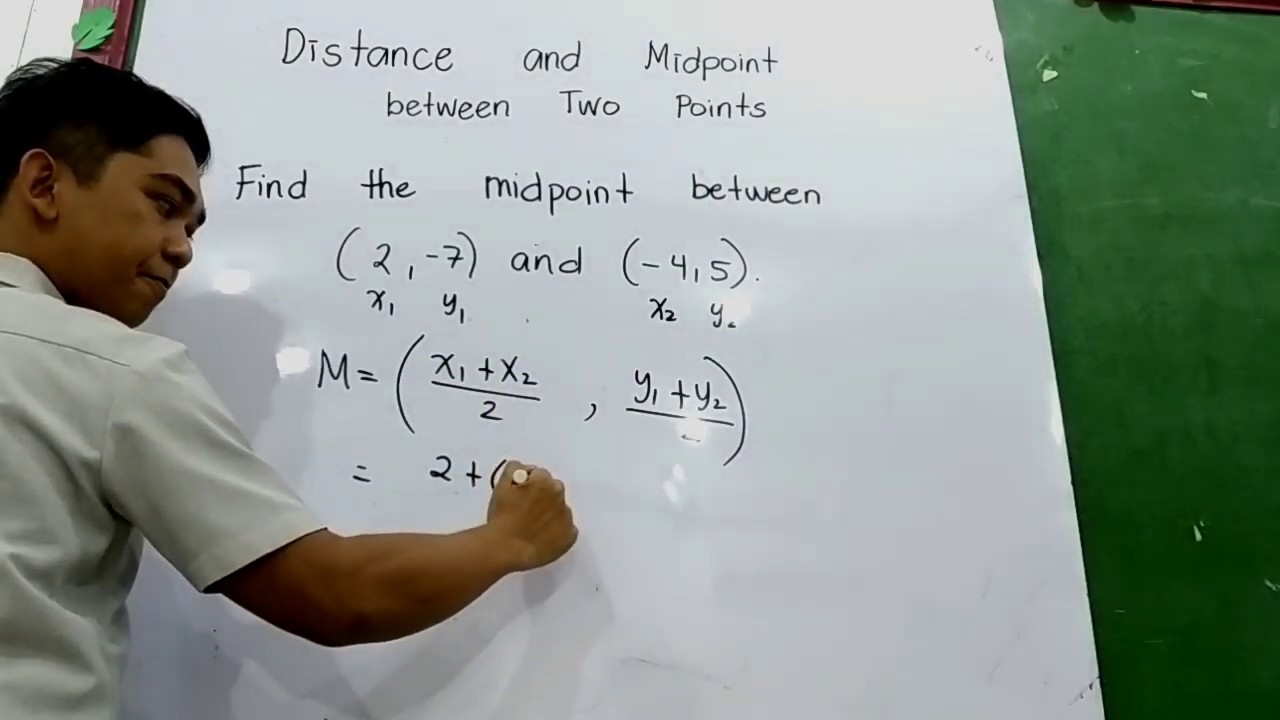 Distance and Midpoint
between Two Points
Find the midpoint between
(2, -7) and (-4, 5).
x₁ y₁ x₂ y₂
M = ( x₁ + x₂ / 2 , y₁ + y₂ / )
= 2 + (